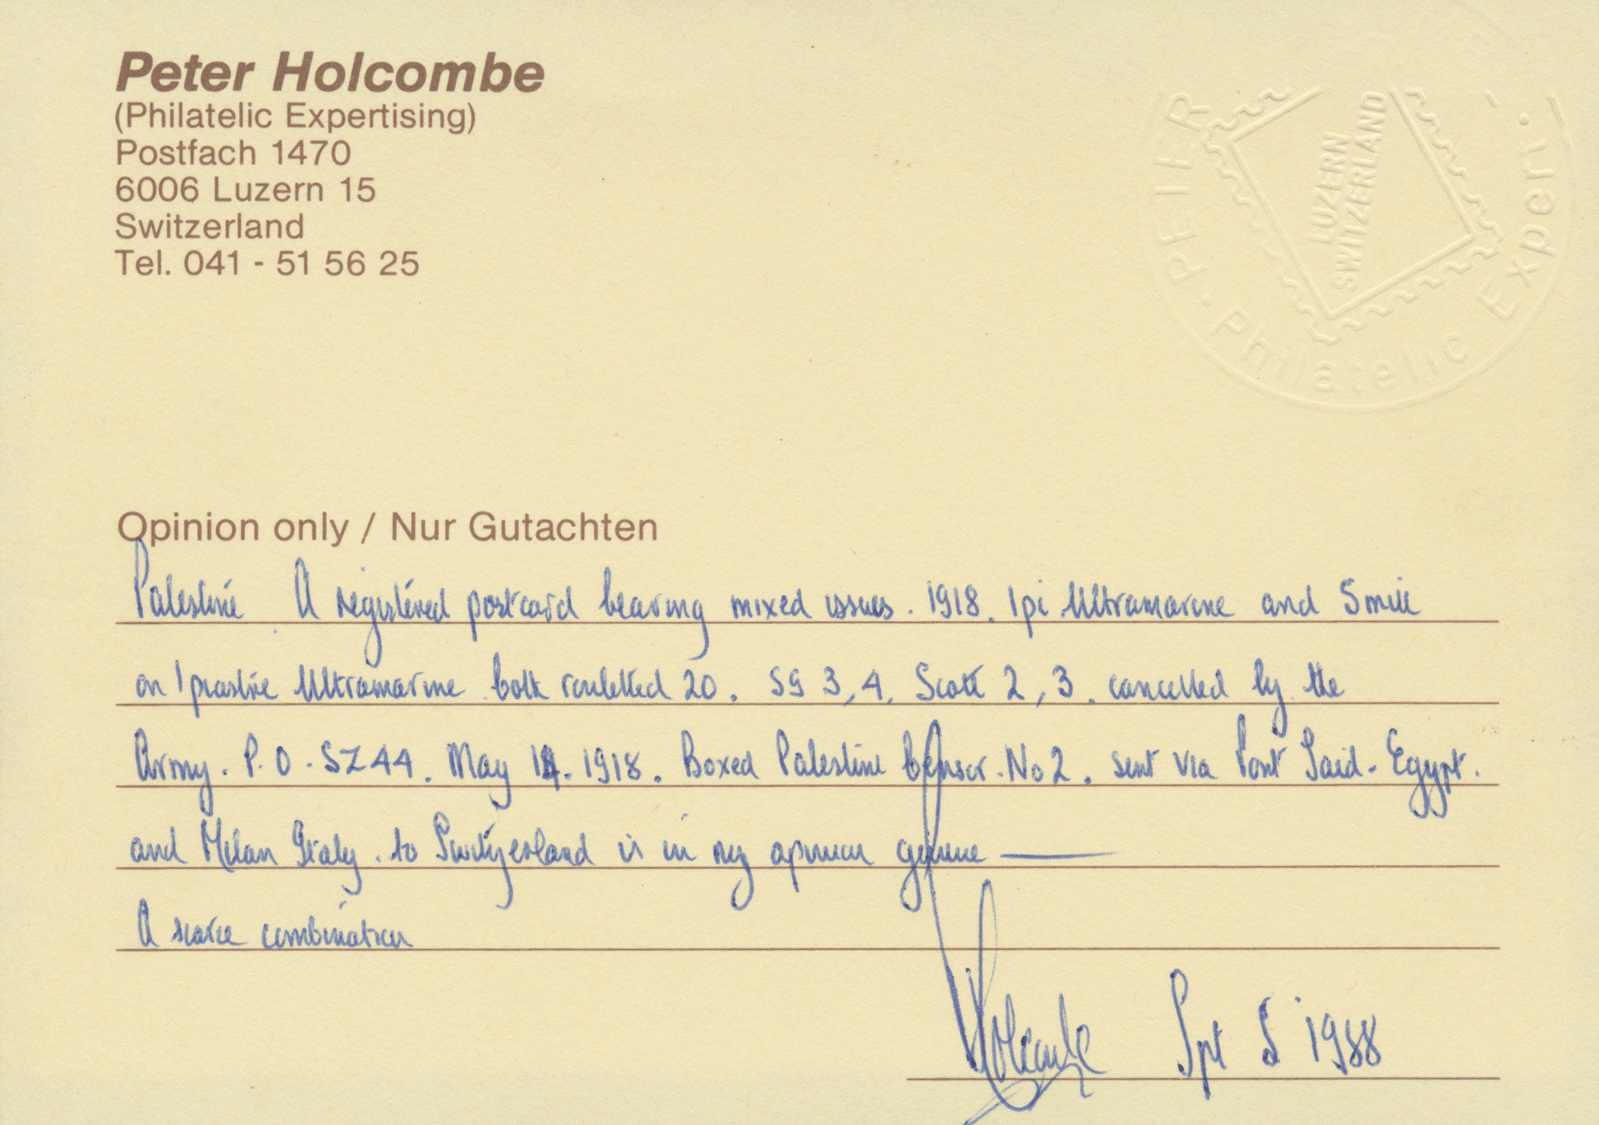 Peter Holcombe
(Philatelic Expertising)
Postfach 1470
6006 Luzern 15
Switzerland
Tel. 041 - 51 56 25
PETER
LUZERN
SWITZERLAND
· Philatelic Expert ·
Opinion only / Nur Gutachten
Palestine A registered postcard bearing mixed issues. 1918. 1pi Ultramarine and 5 mill
on 1 piastre Ultramarine both rouletted 20. SG 3, 4. Scott 2, 3. cancelled by the
Army. P.O. SZ44. May 14. 1918. Boxed Palestine Censor. No 2. sent via Port Said - Egypt.
and Milan Italy. to Switzerland is in my opinion genuine
A scarce combination
Holcombe Spt 5 1988